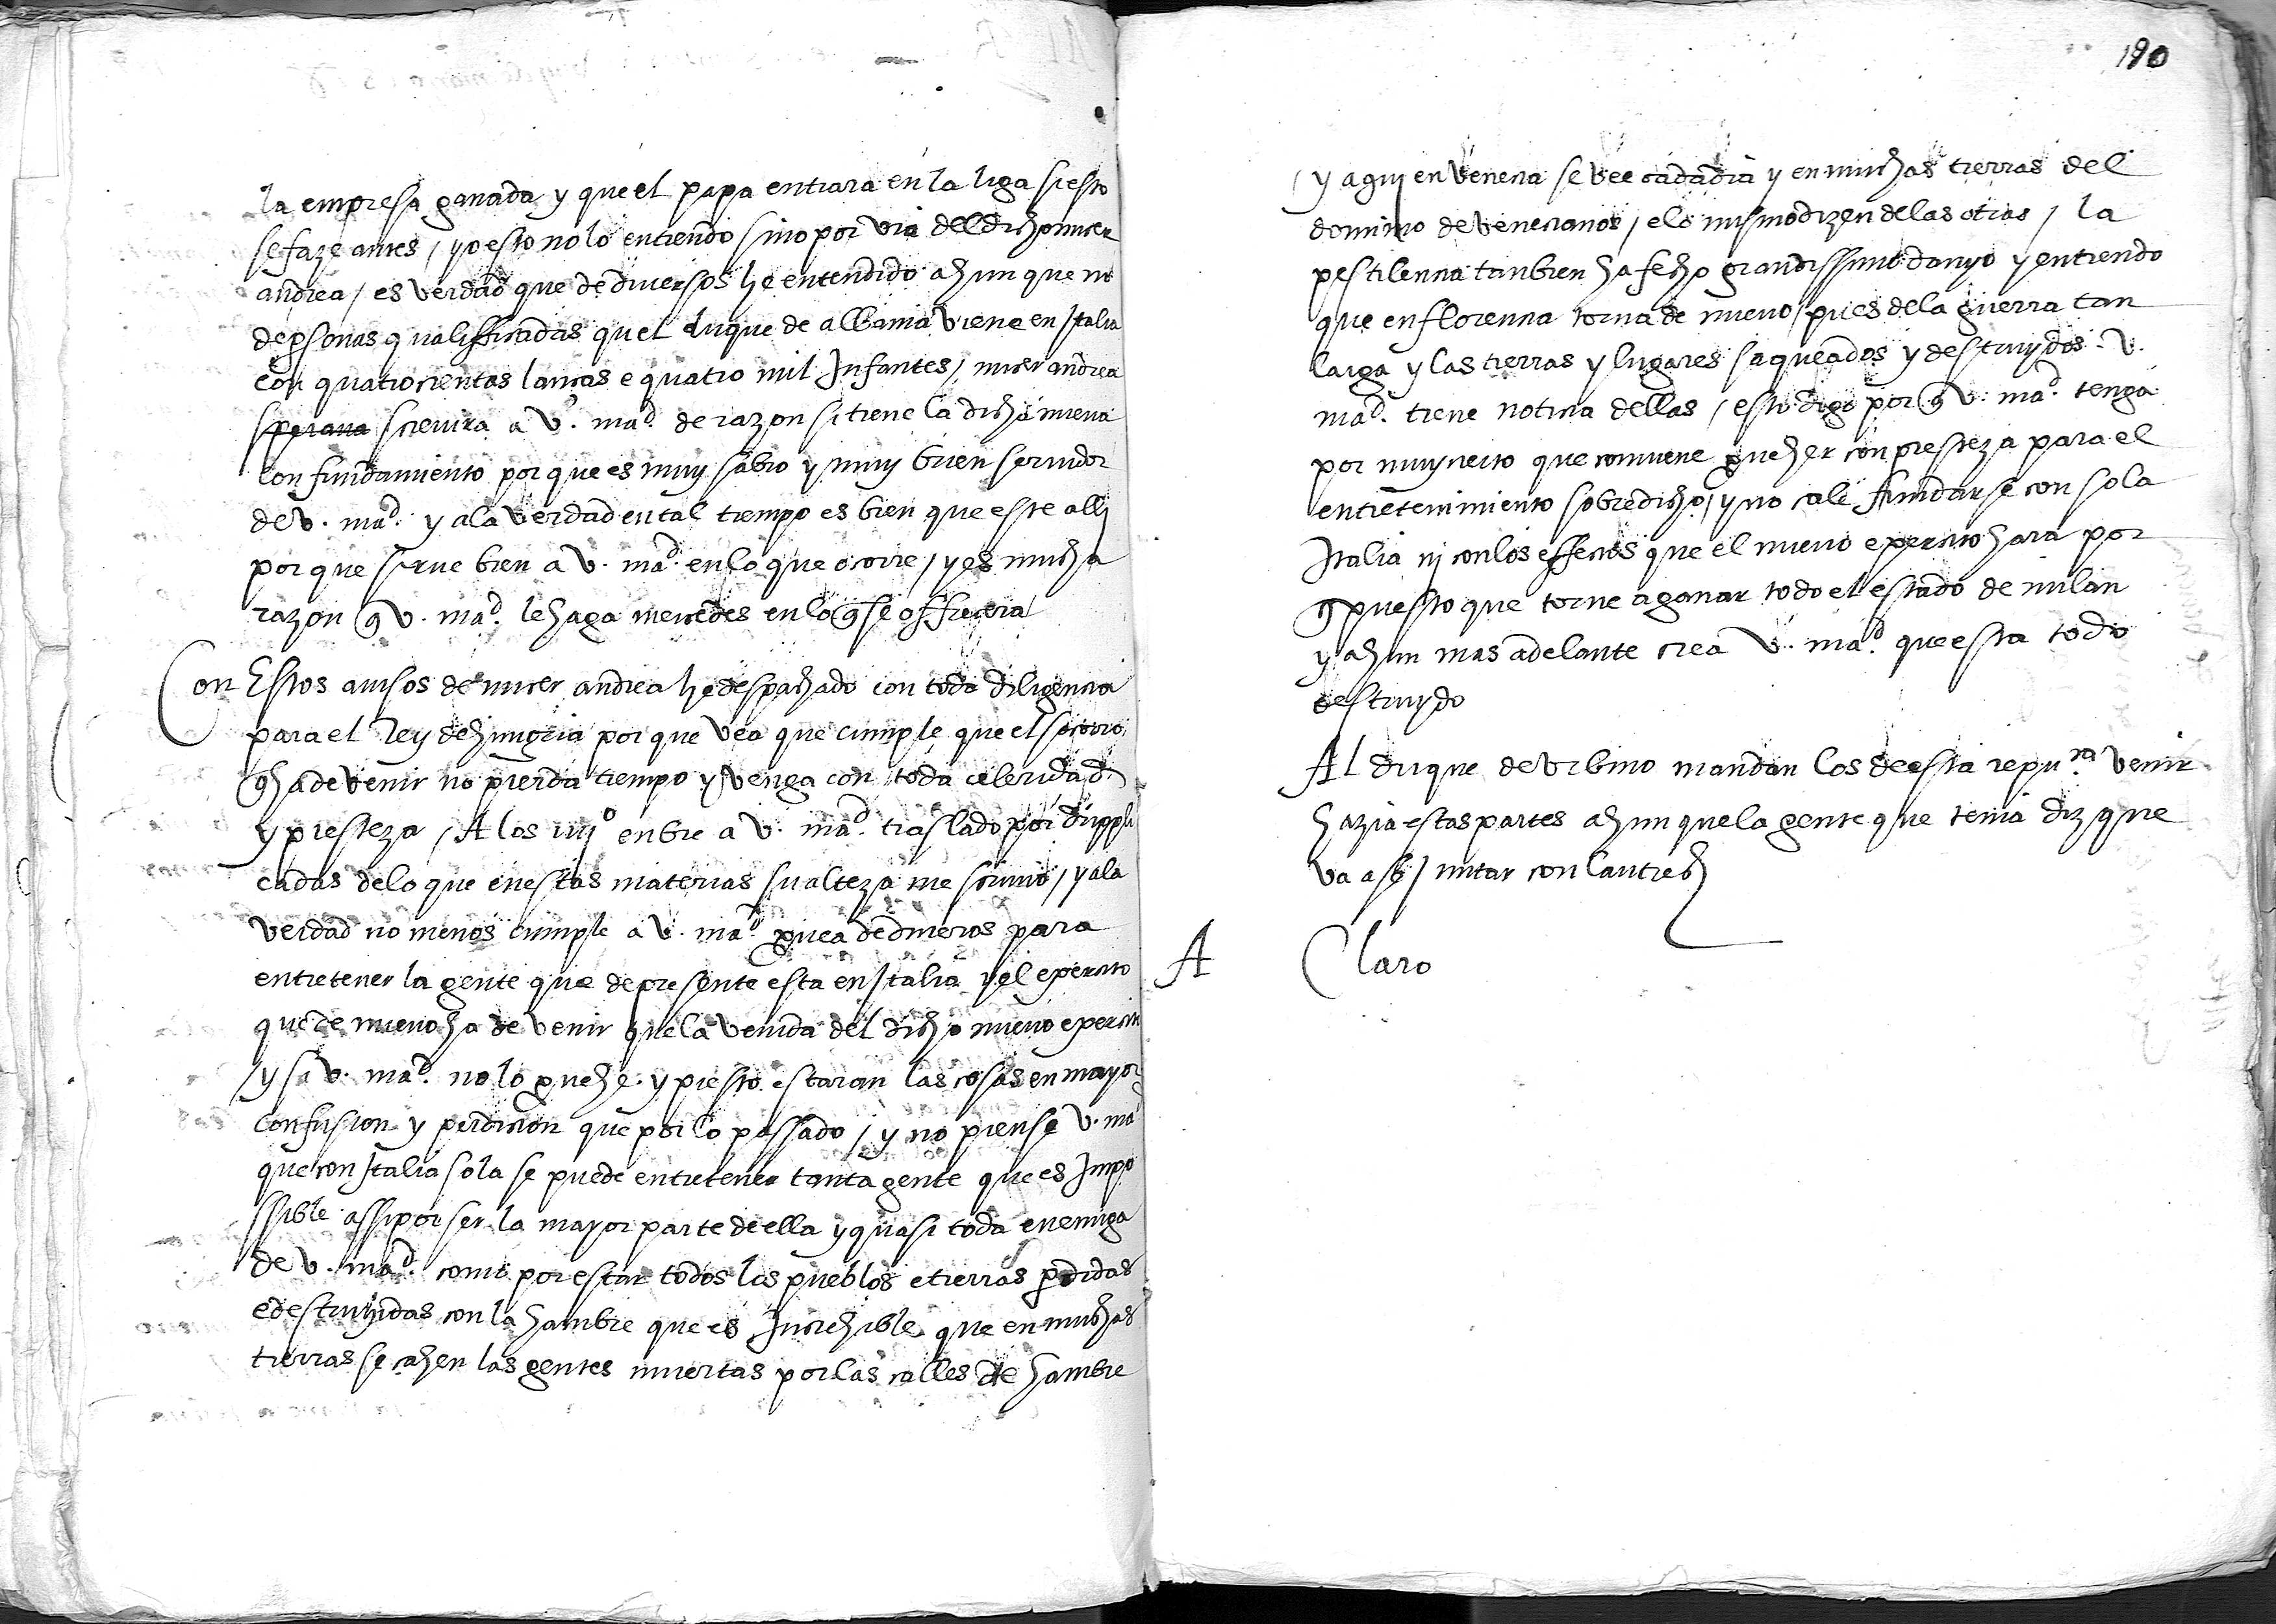 la empresa ganada y que el papa entrara en la liga si esto
se faze antes / yo esto no lo entiendo sino por via del dicho micer
andrea / es verdad que de diversos he entendido ahun que no
de psonas qualifficadas quel duque de albania viene en Italia
con quatrocientas lanças e quatro mil Infantes / micer andrea
screvira a V. mad. de razon si tiene la dicha nueva
con fundamiento por que es muy sabio y muy buen servidor
de v. mad. y a la verdad en tal tiempo es bien que este alli
por que sirve bien a V. mad. en lo que ocorre / y es mucha
razon q V. mad. le haga mercedes en lo q se offrecera
Con Estos avisos de micer andrea he despachado con toda diligencia
para el Rey de hungria por que vea que cumple que el socorro
q ha de venir no pierda tiempo y venga con toda celeridad
y presteza / A los iiijº enbie a V. mad. traslado por duppli
cadas de lo que en estas materias su alteza me scrivio / y a la
verdad no menos cumple a V. mad. provea de dineros para
entretener la gente que de presente esta en Italia y el exercito
que de nuevo ha de venir que la venida del dicho nuevo exercito
/ y si v. mad. no lo prohe y presto estaran las cosas en mayor
confusion y perdicion que por lo passado / y no piense v. mad
que con Italia sola se puede entretener tanta gente que es Impo
ssible assi por ser la mayor parte de ella y quasi toda enemiga
de v. mad. como por estar todos los pueblos e tierras pdidas
e destruydas con la hambre que es Increhible que en muchas
tierras se cahen las gentes muertas por las calles de hambre
190
/ y aqui en Venecia se vee cada dia y en muchas tierras del
dominio de venecianos / e lo mismo dizen de las otras / la
pestilencia tanbien ha fecho grandissimo danyo y entiendo
que en florencia torna de nuevo / pues de la guerra tan
larga y las tierras y lugares saqueados y destruydos V.
mad. tiene noticia dellas / esto digo por q V. mad. tenga
por muy cierto que conviene proheer con presteza para el
entretenimiento sobredicho / y no cale fundarse con sola
Italia ni con los effectos que el nuevo exercito hara por
q puesto que torne a ganar todo el estado de milan
y ahun mas adelante crea V. mad. que esta todo
destruydo
Al duque de Urbino mandan los de esta repu.ca venir
hazia estas partes ahun que la gente que tenia diz que
va a se juntar con lautrech
A Claro